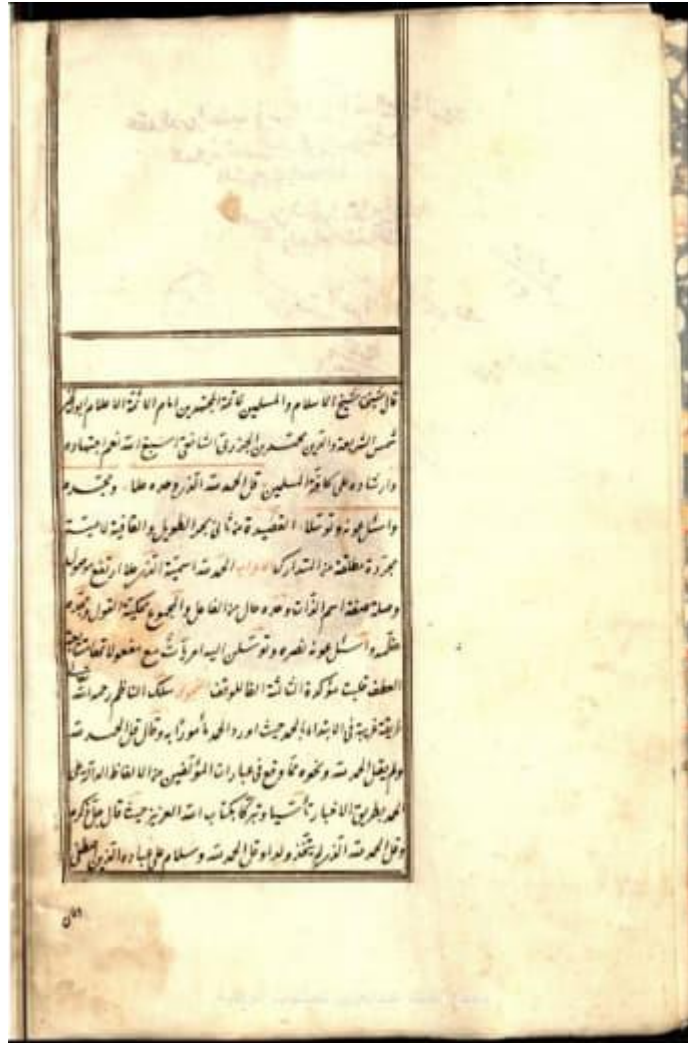 قال شيخنا شيخ الاسلام والمسلمين خاتمة المجتهدين امام الائمة الاعلام ابو الخير
شمس الشريعة والدين محمد بن الجزري الشافعي اسبغ الله نعم اجتهاده
وارشاده على كافة المسلمين قل الحمد لله الذي وحده علا ومجده
واسئل عونه وتوسلا القصيدة من ثاني بحر الطويل والقافية لامية
مجردة مطلقة من المتدارك الاعراب الحمد لله اسمية الذي علا ارتفع موصول
وصلة صفة اسم الذات وحده حال من الفاعل والمجموع محكية القول ومجده
عظمه واسئل عونه نصره وتوسلن اليه امريات مع مفعولاتها
العطف قلبت مؤكدة الثالثة الفا للوقف سلك الناظم رحمه الله
طريقة غريبة في الابتداء بالحمد حيث اورد الحمد مأمورا به وقال قل الحمد لله
ولم يقل الحمد لله ونحوه مما وقع في عبارات المؤلفين من الالفاظ الدالة على
الحمد بطريق الاخبار تأسيا وتبركا بكتاب الله العزيز حيث قال جل ذكره
وقل الحمد لله الذي لم يتخذ ولدا وقل الحمد لله وسلام على عباده الذين اصطفى